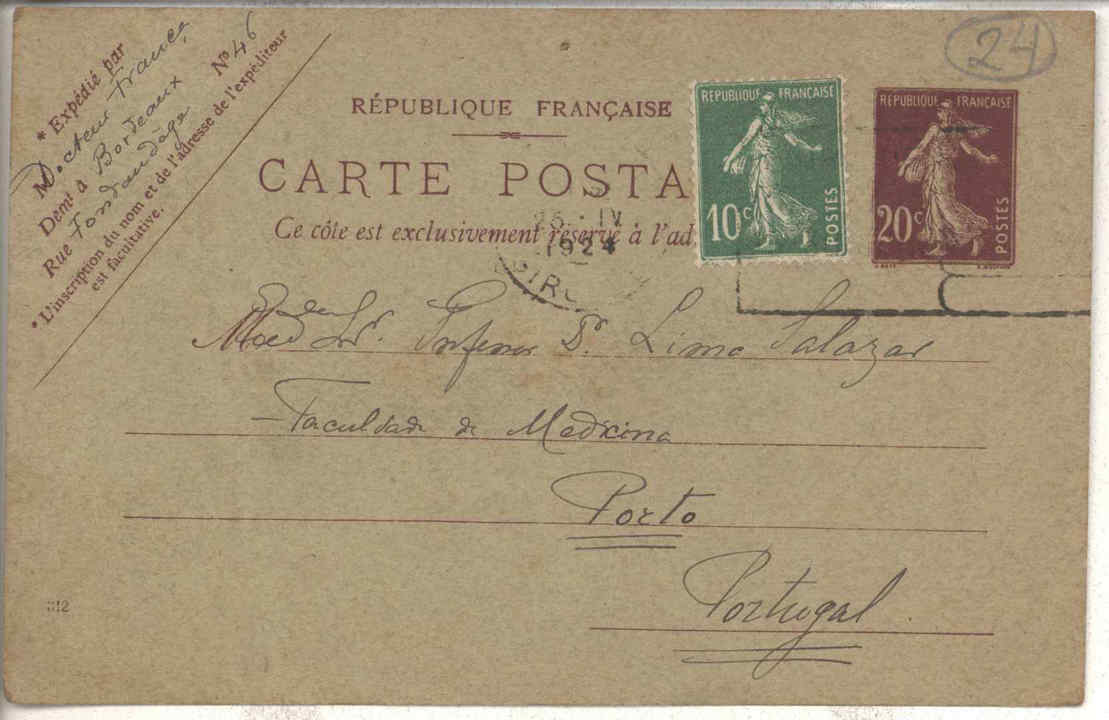 24
* Expédié par
M Docteur França
Demt à Bordeaux
Rue Fondaudège Nº 46
* L'inscription du nom et de l'adresse de l'expéditeur
est facultative.
RÉPUBLIQUE FRANÇAISE
CARTE POSTA
Ce côté est exclusivement réservé à l'ad
RÉPUBLIQUE FRANÇAISE
10c
POSTES
RÉPUBLIQUE FRANÇAISE
20c
POSTES
25 - IV
1924
GIR
Sr. Dr. Lima Salazar
Faculdade de Medicina
Porto
Portugal
312